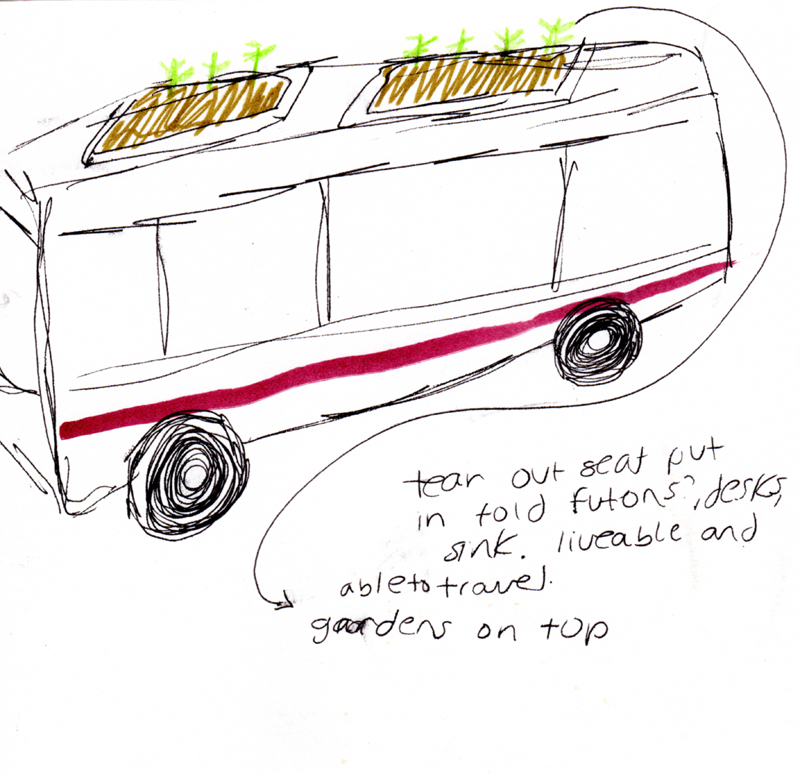 tear out seat put
in fold futons?, desks,
sink. liveable and
able to travel.
gardens on top